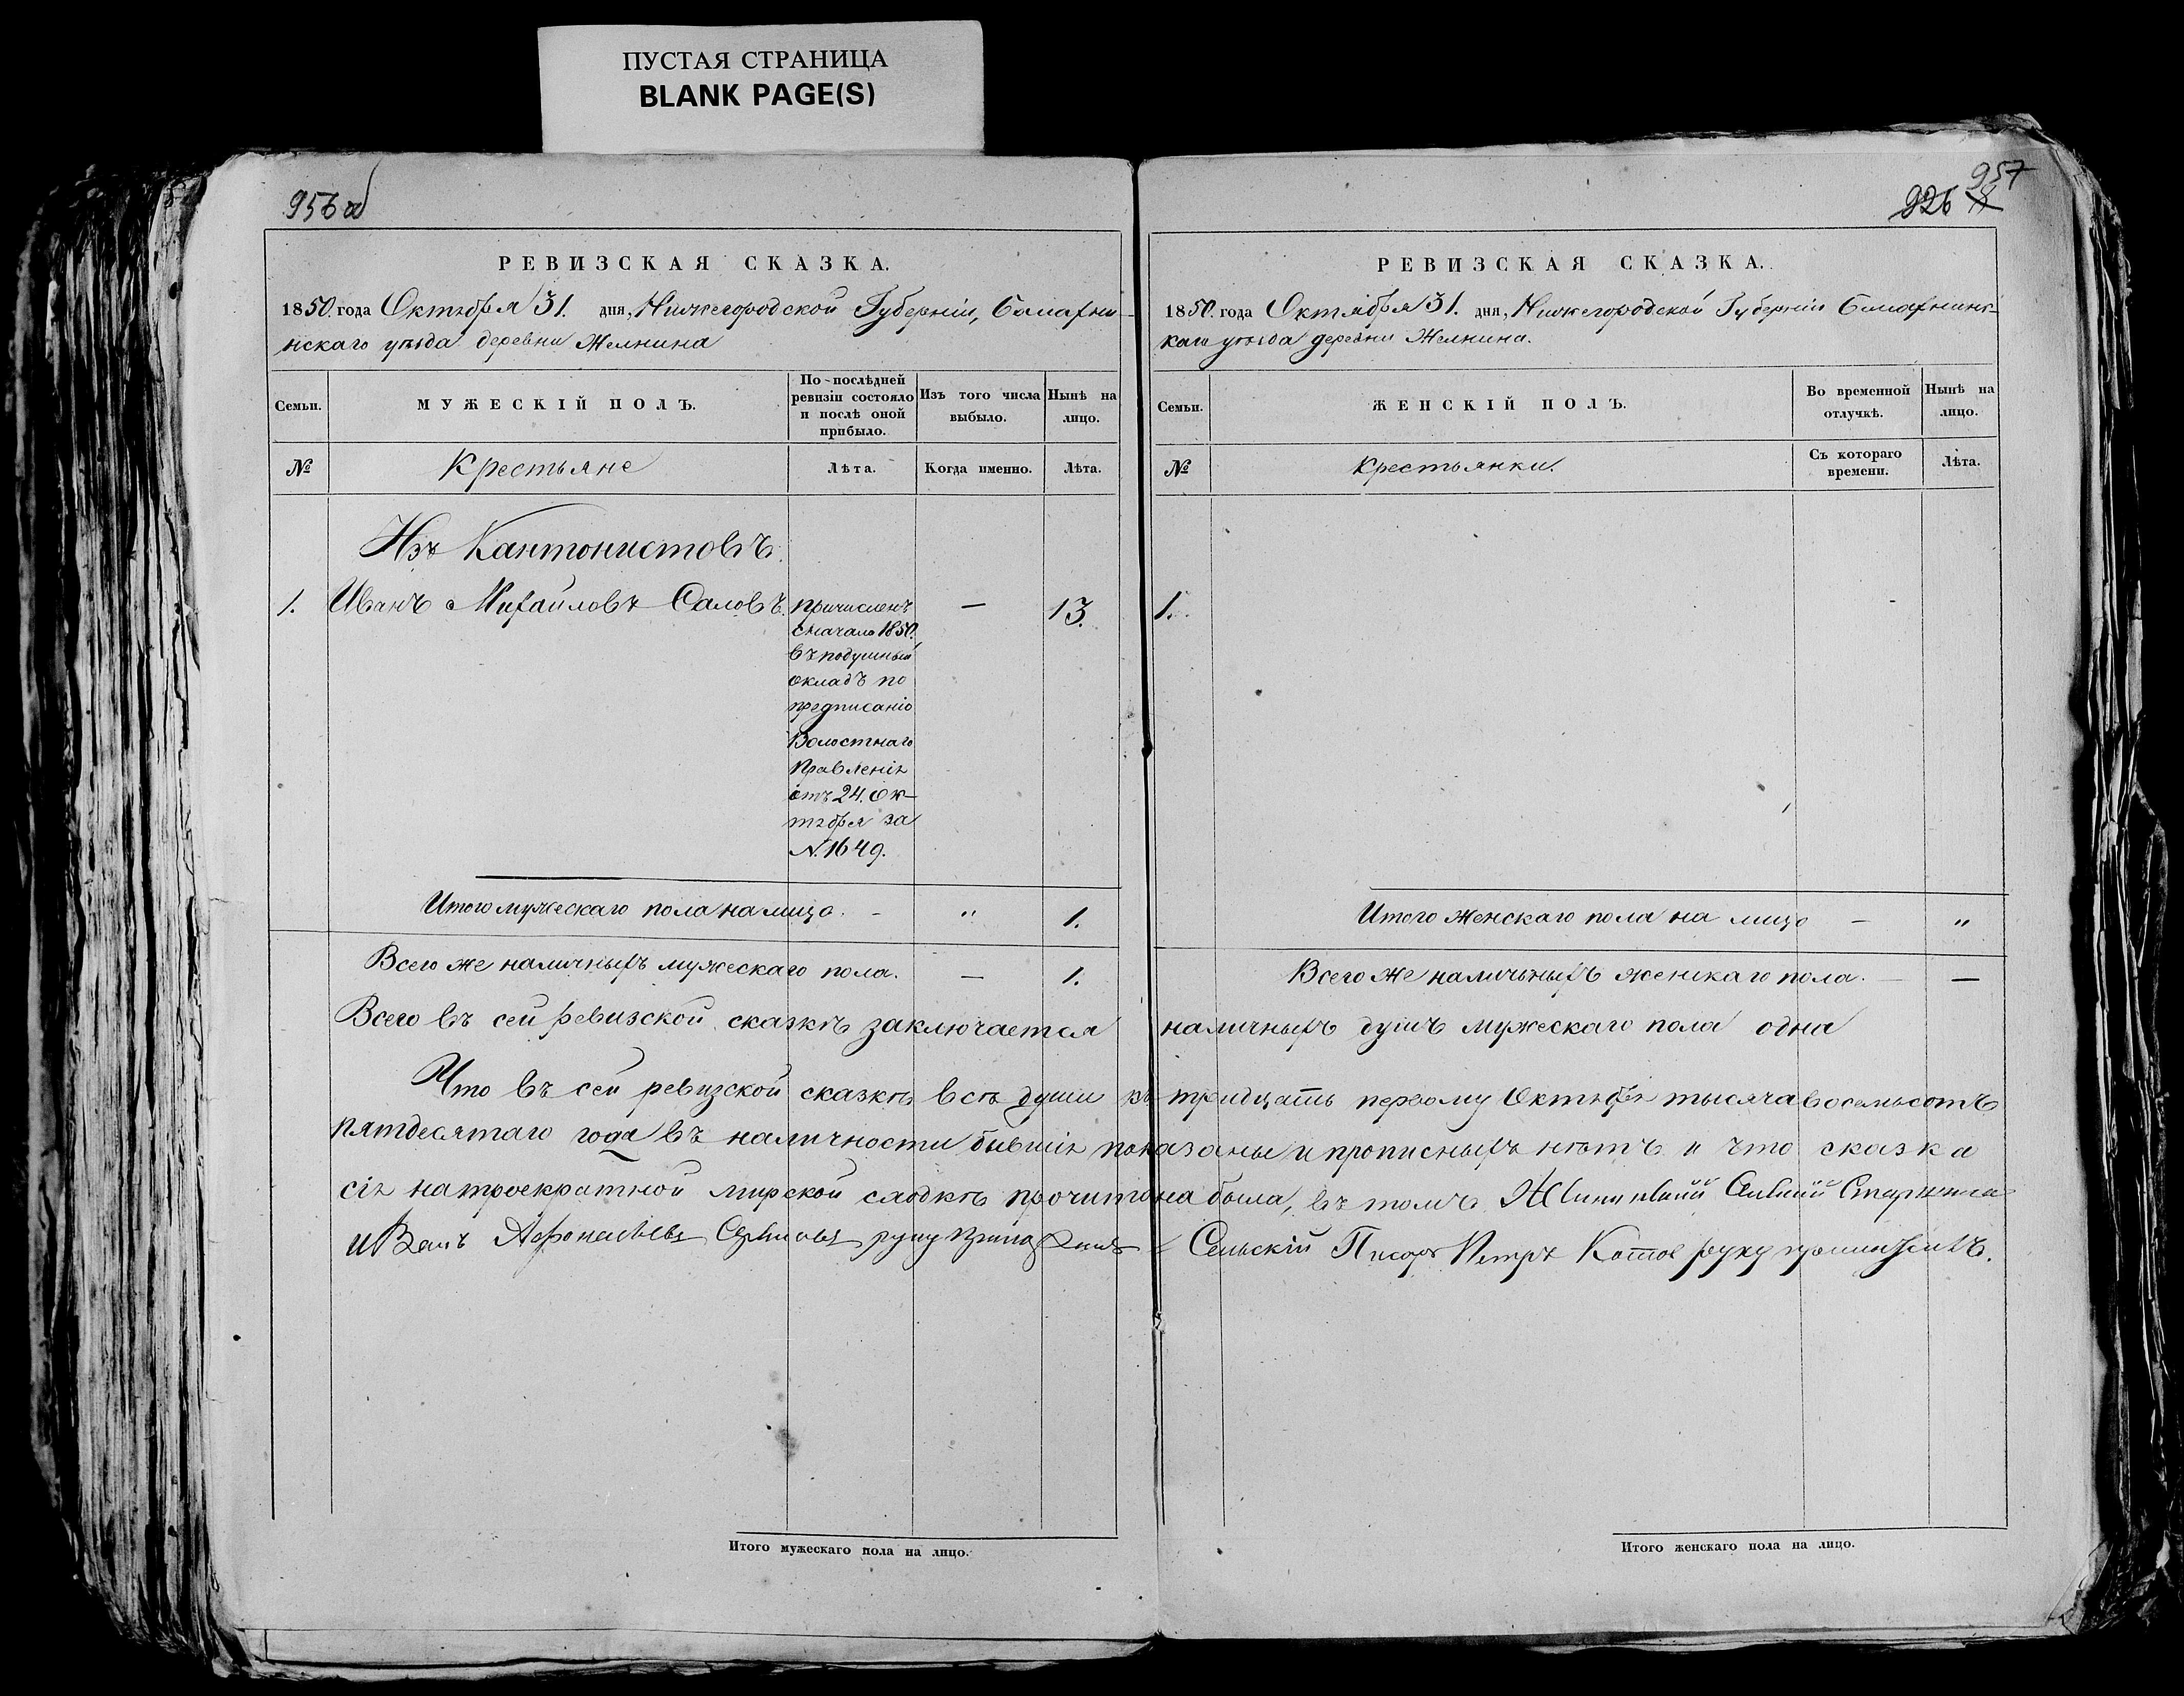 ПУСТАЯ СТРАНИЦА
BLANK PAGE(S)
956 об
РЕВИЗСКАЯ СКАЗКА.
1850. года Октября 31. дня, Нижегородской Губерніи, Балахни-
нскаго уѣзда деревни Желнина
Семьи.
МУЖЕСКІЙ ПОЛЪ.
По послѣдней
ревизіи состояло
и послѣ оной
прибыло.
Изъ того числа
выбыло.
Нынѣ на
лицо.
№
Крестьяне
Лѣта.
Когда именно.
Лѣта.
Изъ Кантонистовъ.
1. Иванъ Михайловъ Саловъ.
причисленъ
сначала 1850.
въ подушный
окладъ по
предписанію
Волостнаго
Правленія
отъ 24. Ок-
тября за
N. 1649.
— 13.
Итого мужескаго пола на лицо. - " 1.
Всего же наличныхъ мужескаго пола. — 1.
957
926
РЕВИЗСКАЯ СКАЗКА.
1850. года Октября 31. дня, Нижегородской Губерніи Балахнинс-
каго уѣзда деревни Желнина.
Семьи.
ЖЕНСКІЙ ПОЛЪ.
Во временной
отлучкѣ.
Нынѣ на
лицо.
№
Крестьянки.
Съ котораго
времени.
Лѣта.
1. -
Итого женскаго пола на лицо — "
Всего же наличныхъ женскаго пола. — —
Всего въ сей ревизской сказкѣ заключается наличныхъ душъ мужескаго пола одна
Что въ сей ревизской сказкѣ всѣ души къ тридцать первому Октября тысяча восемьсотъ
пятдесятаго года въ наличности бывшія показаны и прописныхъ нѣтъ и что сказка
сія на троекратной мирской сходкѣ прочитона была, въ томъ Сельский Старшина
иВанъ Афонасьевъ руку приложилъ Сельскій Писарь Петръ Котов руку приложилъ.
Итого мужескаго пола на лицо.
Итого женскаго пола на лицо.